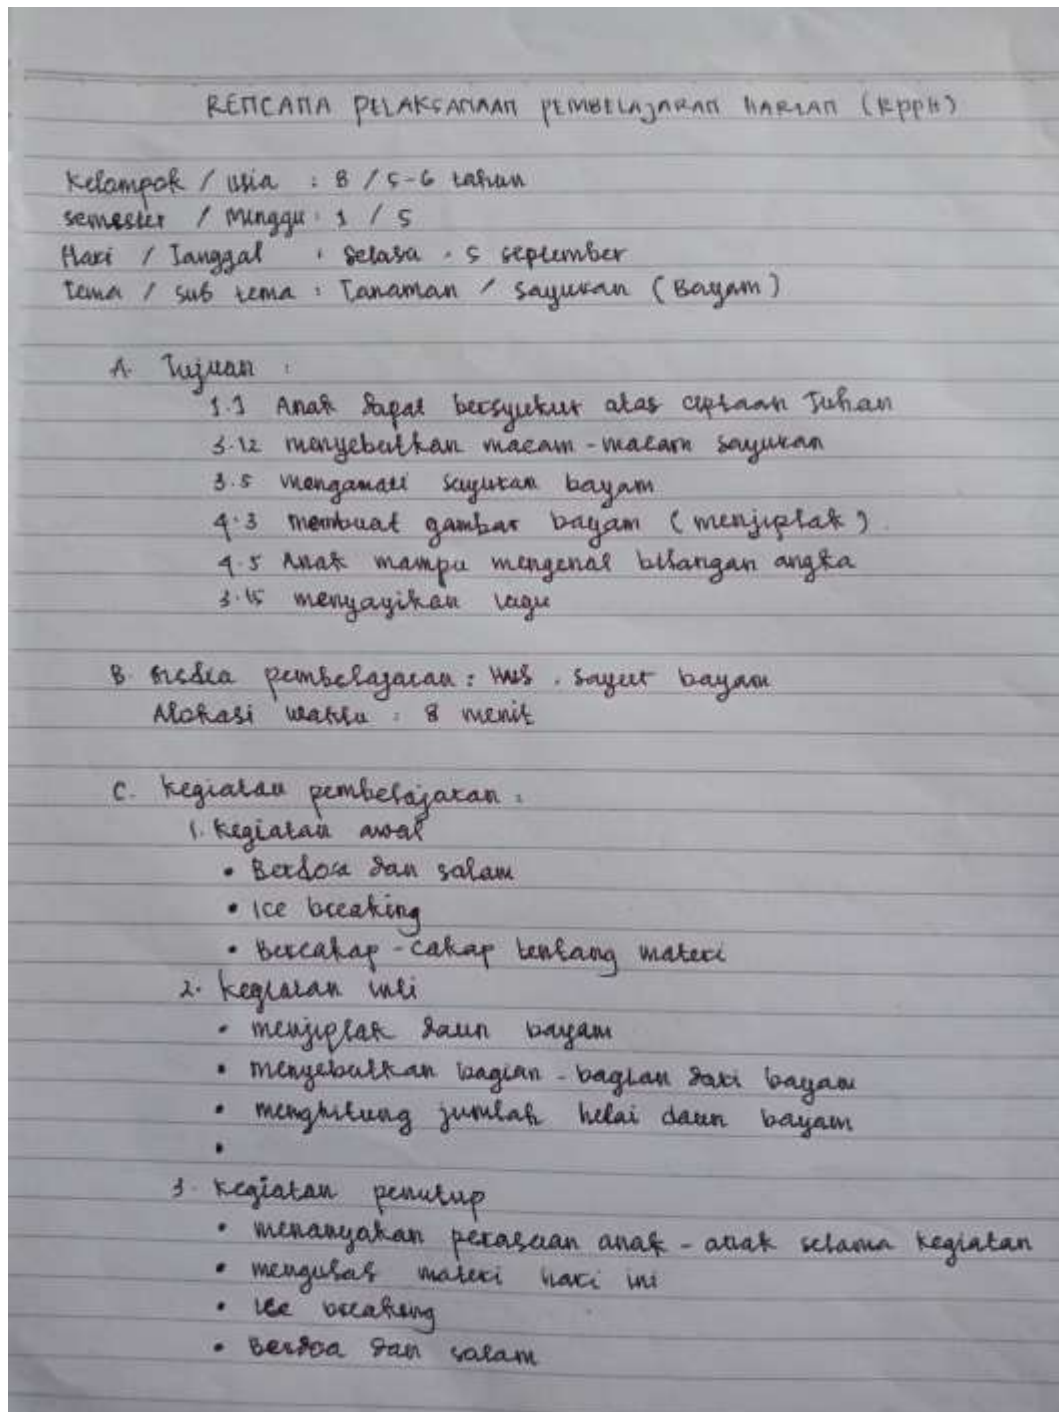 RENCANA PELAKSANAAN PEMBELAJARAN HARIAN (RPPH)
Kelompok / usia : B / 5-6 tahun
semester / Minggu : 1 / 5
Hari / Tanggal : selasa . 5 september
Tema / sub tema : Tanaman / sayuran (Bayam)
A. Tujuan :
1.1 Anak dapat bersyukur atas ciptaan Tuhan
3.12 menyebutkan macam-macam sayuran
3.5 mengamati sayuran bayam
4.3 membuat gambar bayam (menjiplak)
4.5 Anak mampu mengenal bilangan angka
3.15 menyayikan lagu
B. Media pembelajaran : HVS . sayur bayam
Alokasi waktu : 8 menit
C. kegiatan pembelajaran :
1. kegiatan awal
• Berdoa dan salam
• Ice breaking
• Bercakap-cakap tentang materi
2. kegiatan inti
• menjiplak daun bayam
• menyebutkan bagian-bagian dari bayam
• menghitung jumlah helai daun bayam
•
3. kegiatan penutup
• menanyakan perasaan anak-anak selama kegiatan
• mengulas materi hari ini
• Ice breaking
• Berdoa dan salam